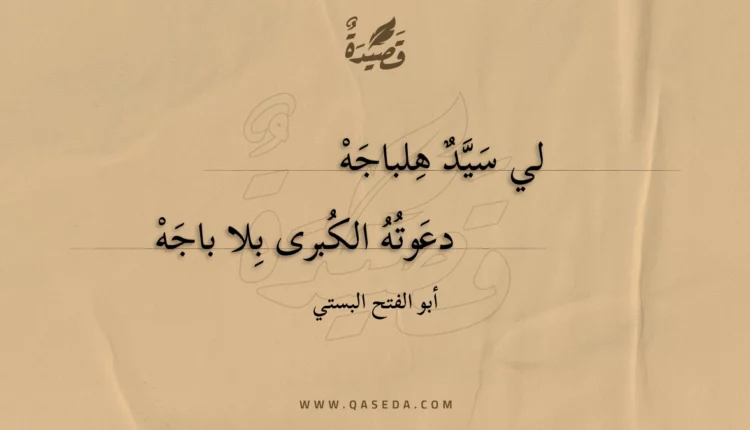 قَصِيدَةٌ
لي سَيَّدٌ هِلباجَهْ
دعَوتُهُ الكُبرى بِلا باجَهْ
أبو الفتح البستي
WWW.QASEDA.COM